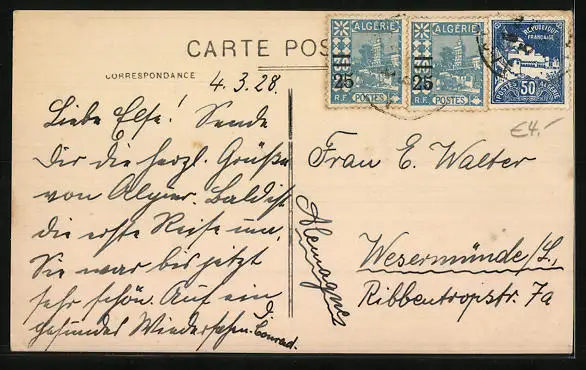 CARTE POS
CORRESPONDANCE
ALGÉRIE
25
R.F. POSTES
ALGÉRIE
25
R.F. POSTES
REPUBLIQUE
FRANÇAISE
50c
POSTES ALGERIE
€4.-
4.3.28.
Liebe Else! Sende
Dir die herzl. Grüße
von Algier. Bald ist
die erste Reise um,
Sie war bis jetzt
sehr schön. Auf ein
gesundes Wiedersehen. D. Conrad.
Frau E. Walter
Wesermünde/L.,
Ribbentropstr. 7a
Alemagnes